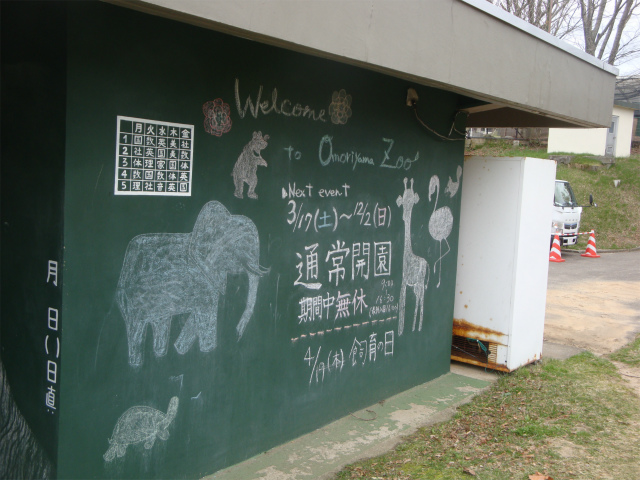 Welcome
to Omoriyama Zoo!
Next event
3/17(土)～12/2(日)
通常開園
期間中無休
9:00
16:30
4/19(木) 飼育の日
月 火 水 木 金
1 国 数 英 美 社
2 社 英 国 美 数
3 体 理 家 国 体
4 数 国 数 体 英
5 理 社 音 英 国
月 日( ) 日直